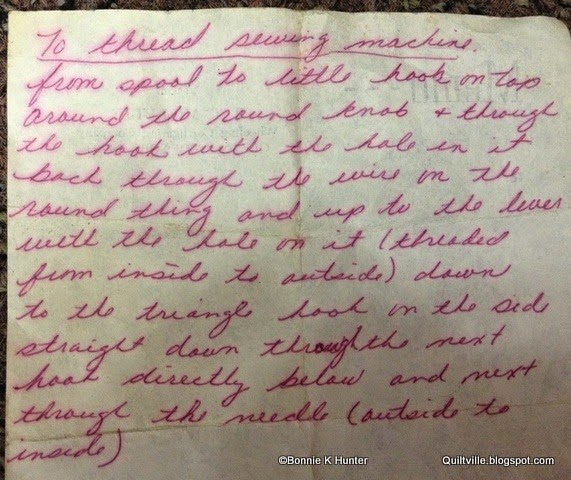 To thread sewing machine.
from spool to little hook on top
around the round knob + through
the hook with the hole in it
back through the wire on the
round thing and up to the lever
with the hole on it (threaded
from inside to outside) down
to the triangle hook on the side
straight down through the next
hook directly below and next
through the needle (outside to
inside)
©Bonnie K Hunter
Quiltville.blogspot.com